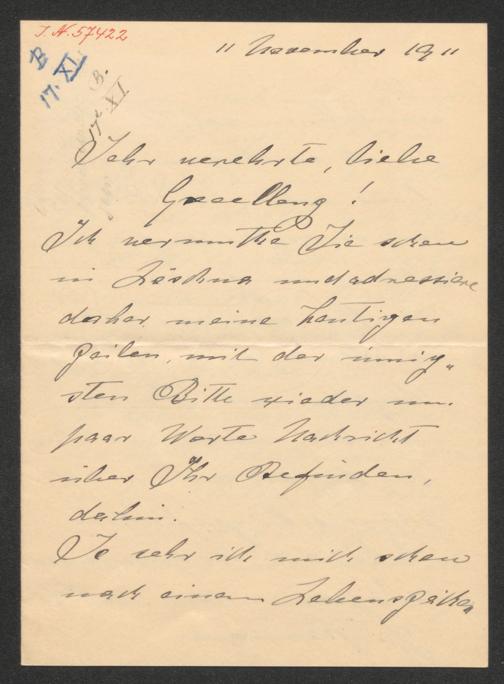 J.N. 57422
B
17. XI.
B.
17/XI
11 November 1911
Sehr verehrte, liebe
Excellenz!
Ich vermuthe Sie schon
in und adressiere
daher meine heutigen
Zeilen, mit der innig„
sten Bitte wieder um
paar Worte Nachricht
über Ihr Befinden,
dahin.
So sehr ich mich schon
nach einem Lebenszeichen